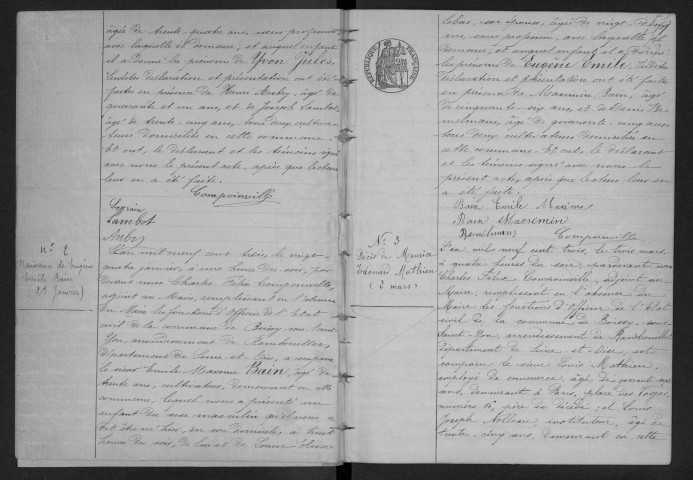 âgée de trente-quatre ans, sans profession,
avec laquelle il demeure; et auquel enfant
il a donné les prénoms de Yvon Jules.
Lesdites déclaration et présentation ont été
faites en présence de Henri Aubry, âgé de
quarante et un ans, et de Joseph Lambot,
âgé de trente-cinq ans, tous deux cultiva-
teurs domiciliés en cette commune.
Et ont, le déclarant et les témoins signé
avec nous le présent acte, après que lecture
leur en a été faite.
Compoinville
Lambot
Aubry
N° 2
Naissance de Eugène
Emile Bain
(24 janvier)
L'an mil neuf cent treize le vingt-
quatre janvier, à une heure du soir, par
devant nous Charles Félix Compoinville,
adjoint au Maire, remplissant en l'absence
du Maire les fonctions d'officier de l'Etat
civil de la commune de Boissy-sous-Saint-
Yon, arrondissement de Rambouillet,
département de Seine et Oise, a comparu
le sieur Emile Maxime Bain, âgé de
trente ans, cultivateur, demeurant en cette
commune, lequel nous a présenté un
enfant du sexe masculin qu'il nous a
dit être né hier, en son domicile, à huit
heures du soir, de lui et de Louise-Elisa
RÉPUBLIQUE FRANÇAISE
son épouse, âgée de vingt
ans, sans profession, avec laquelle il
demeure; et auquel enfant il a donné
les prénoms de Eugène Emile. Lesdites
déclaration et présentation ont été faites
en présence de Maximin Bain, âgé
de cinquante-six ans, et de Denis
âgé de quarante-cinq ans
tous deux cultivateurs domiciliés en
cette commune. Et ont, le déclarant
et les témoins signé avec nous le
présent acte, après que lecture leur en
a été faite.
Bain Emile Maxime
Bain Maximin
Compoinville
N° 3
Décès de Maurice
Edouard Mathieu
(2 mars)
L'an mil neuf cent treize, le trois mars,
à quatre heures du soir, par devant nous
Charles Félix Compoinville, adjoint au
Maire, remplissant en l'absence du
Maire les fonctions d'officier de l'Etat
civil de la commune de Boissy-sous-
Saint-Yon, arrondissement de Rambouillet,
département de Seine et Oise, est
comparu le sieur Louis Mathieu,
employé de commerce, âgé de
ans, demeurant à Paris, place des Vosges,
numéro père du décédé; et Louis
Joseph Nolleau, instituteur, âgé de
trente-cinq ans, demeurant en cette